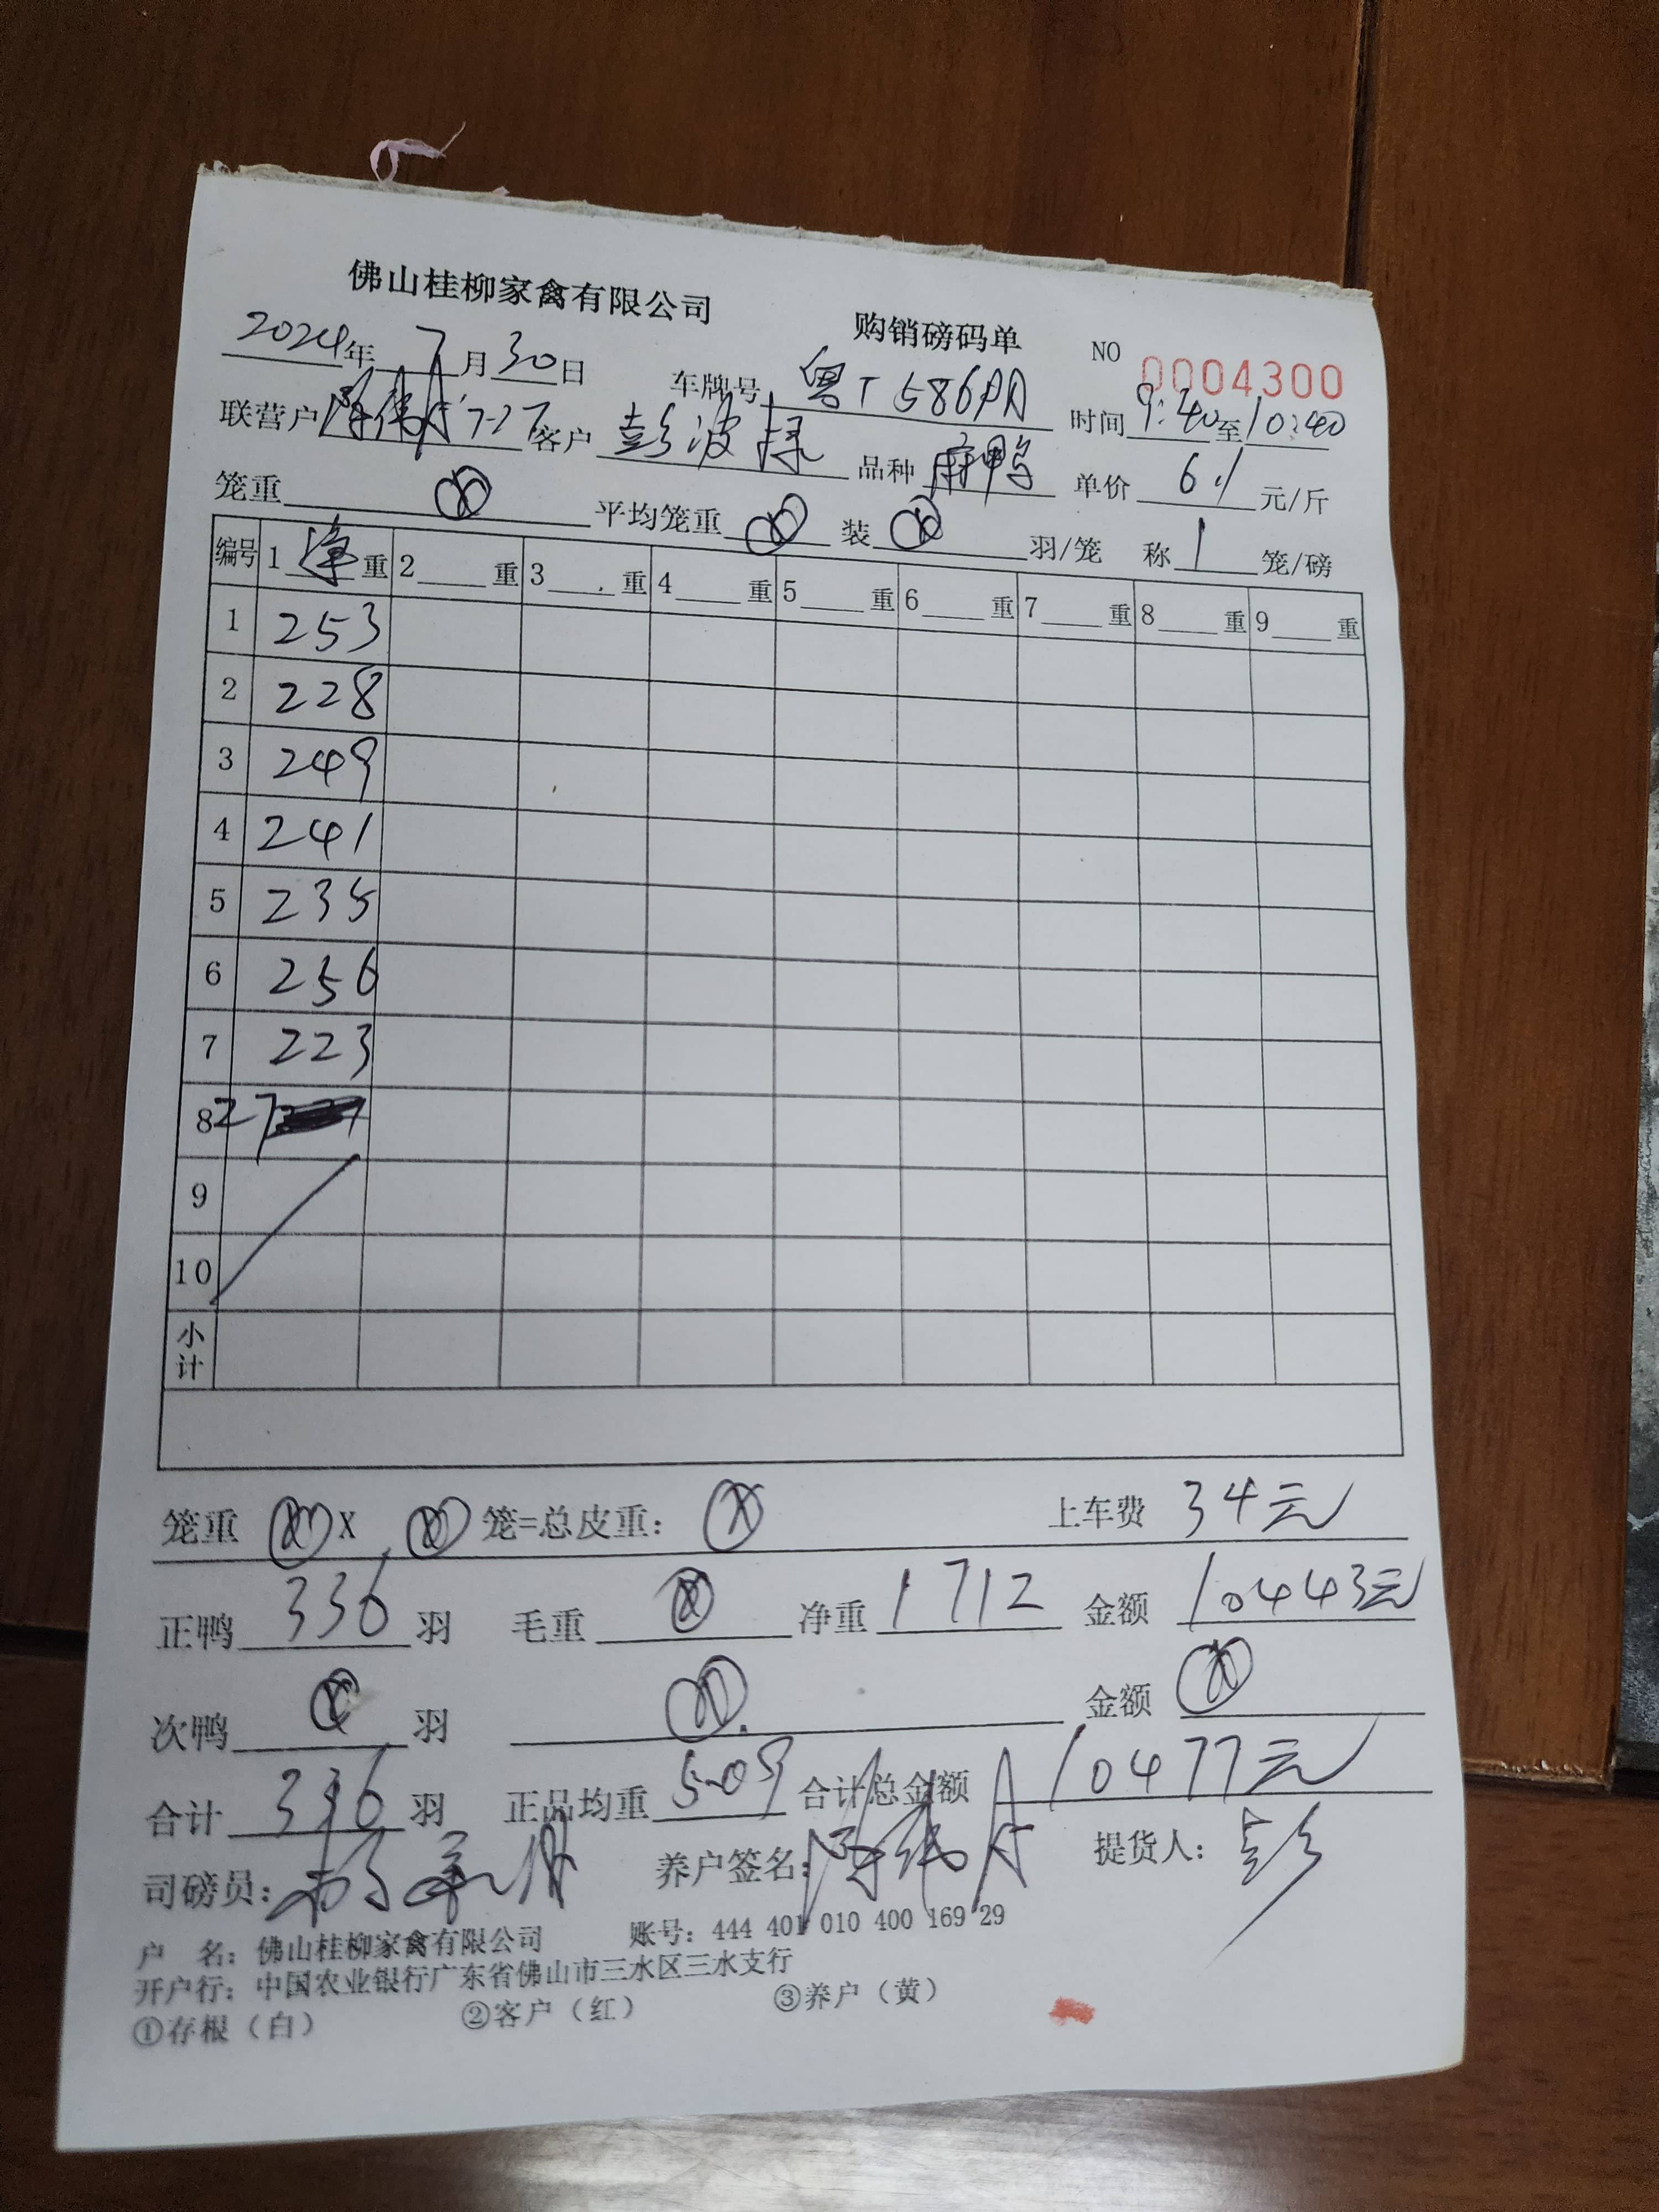 佛山桂柳家禽有限公司 购销磅码单 NO 0004300
2024年 7月30日 车牌号 粤T 586 时间 9:40至10:40
联营户 7-27 客户 彭波 品种 麻鸭 单价 6.1 元/斤
笼重 平均笼重 装 羽/笼 称 1 笼/磅
编号 1 净 重 2 重 3 重 4 重 5 重 6 重 7 重 8 重 9 重
1 253
2 228
3 249
4 241
5 235
6 256
7 223
8 27
9
10
小计
笼重 X 笼=总皮重: 上车费 34元
正鸭 336 羽 毛重 净重 1712 金额 10443元
次鸭 羽 金额
合计 336 羽 正品均重 5.09 合计总金额 10477元
司磅员: 养户签名: 提货人: 彭
户 名: 佛山桂柳家禽有限公司 账号: 444 401 010 400 169 29
开户行: 中国农业银行广东省佛山市三水区三水支行
①存根（白） ②客户（红） ③养户（黄）